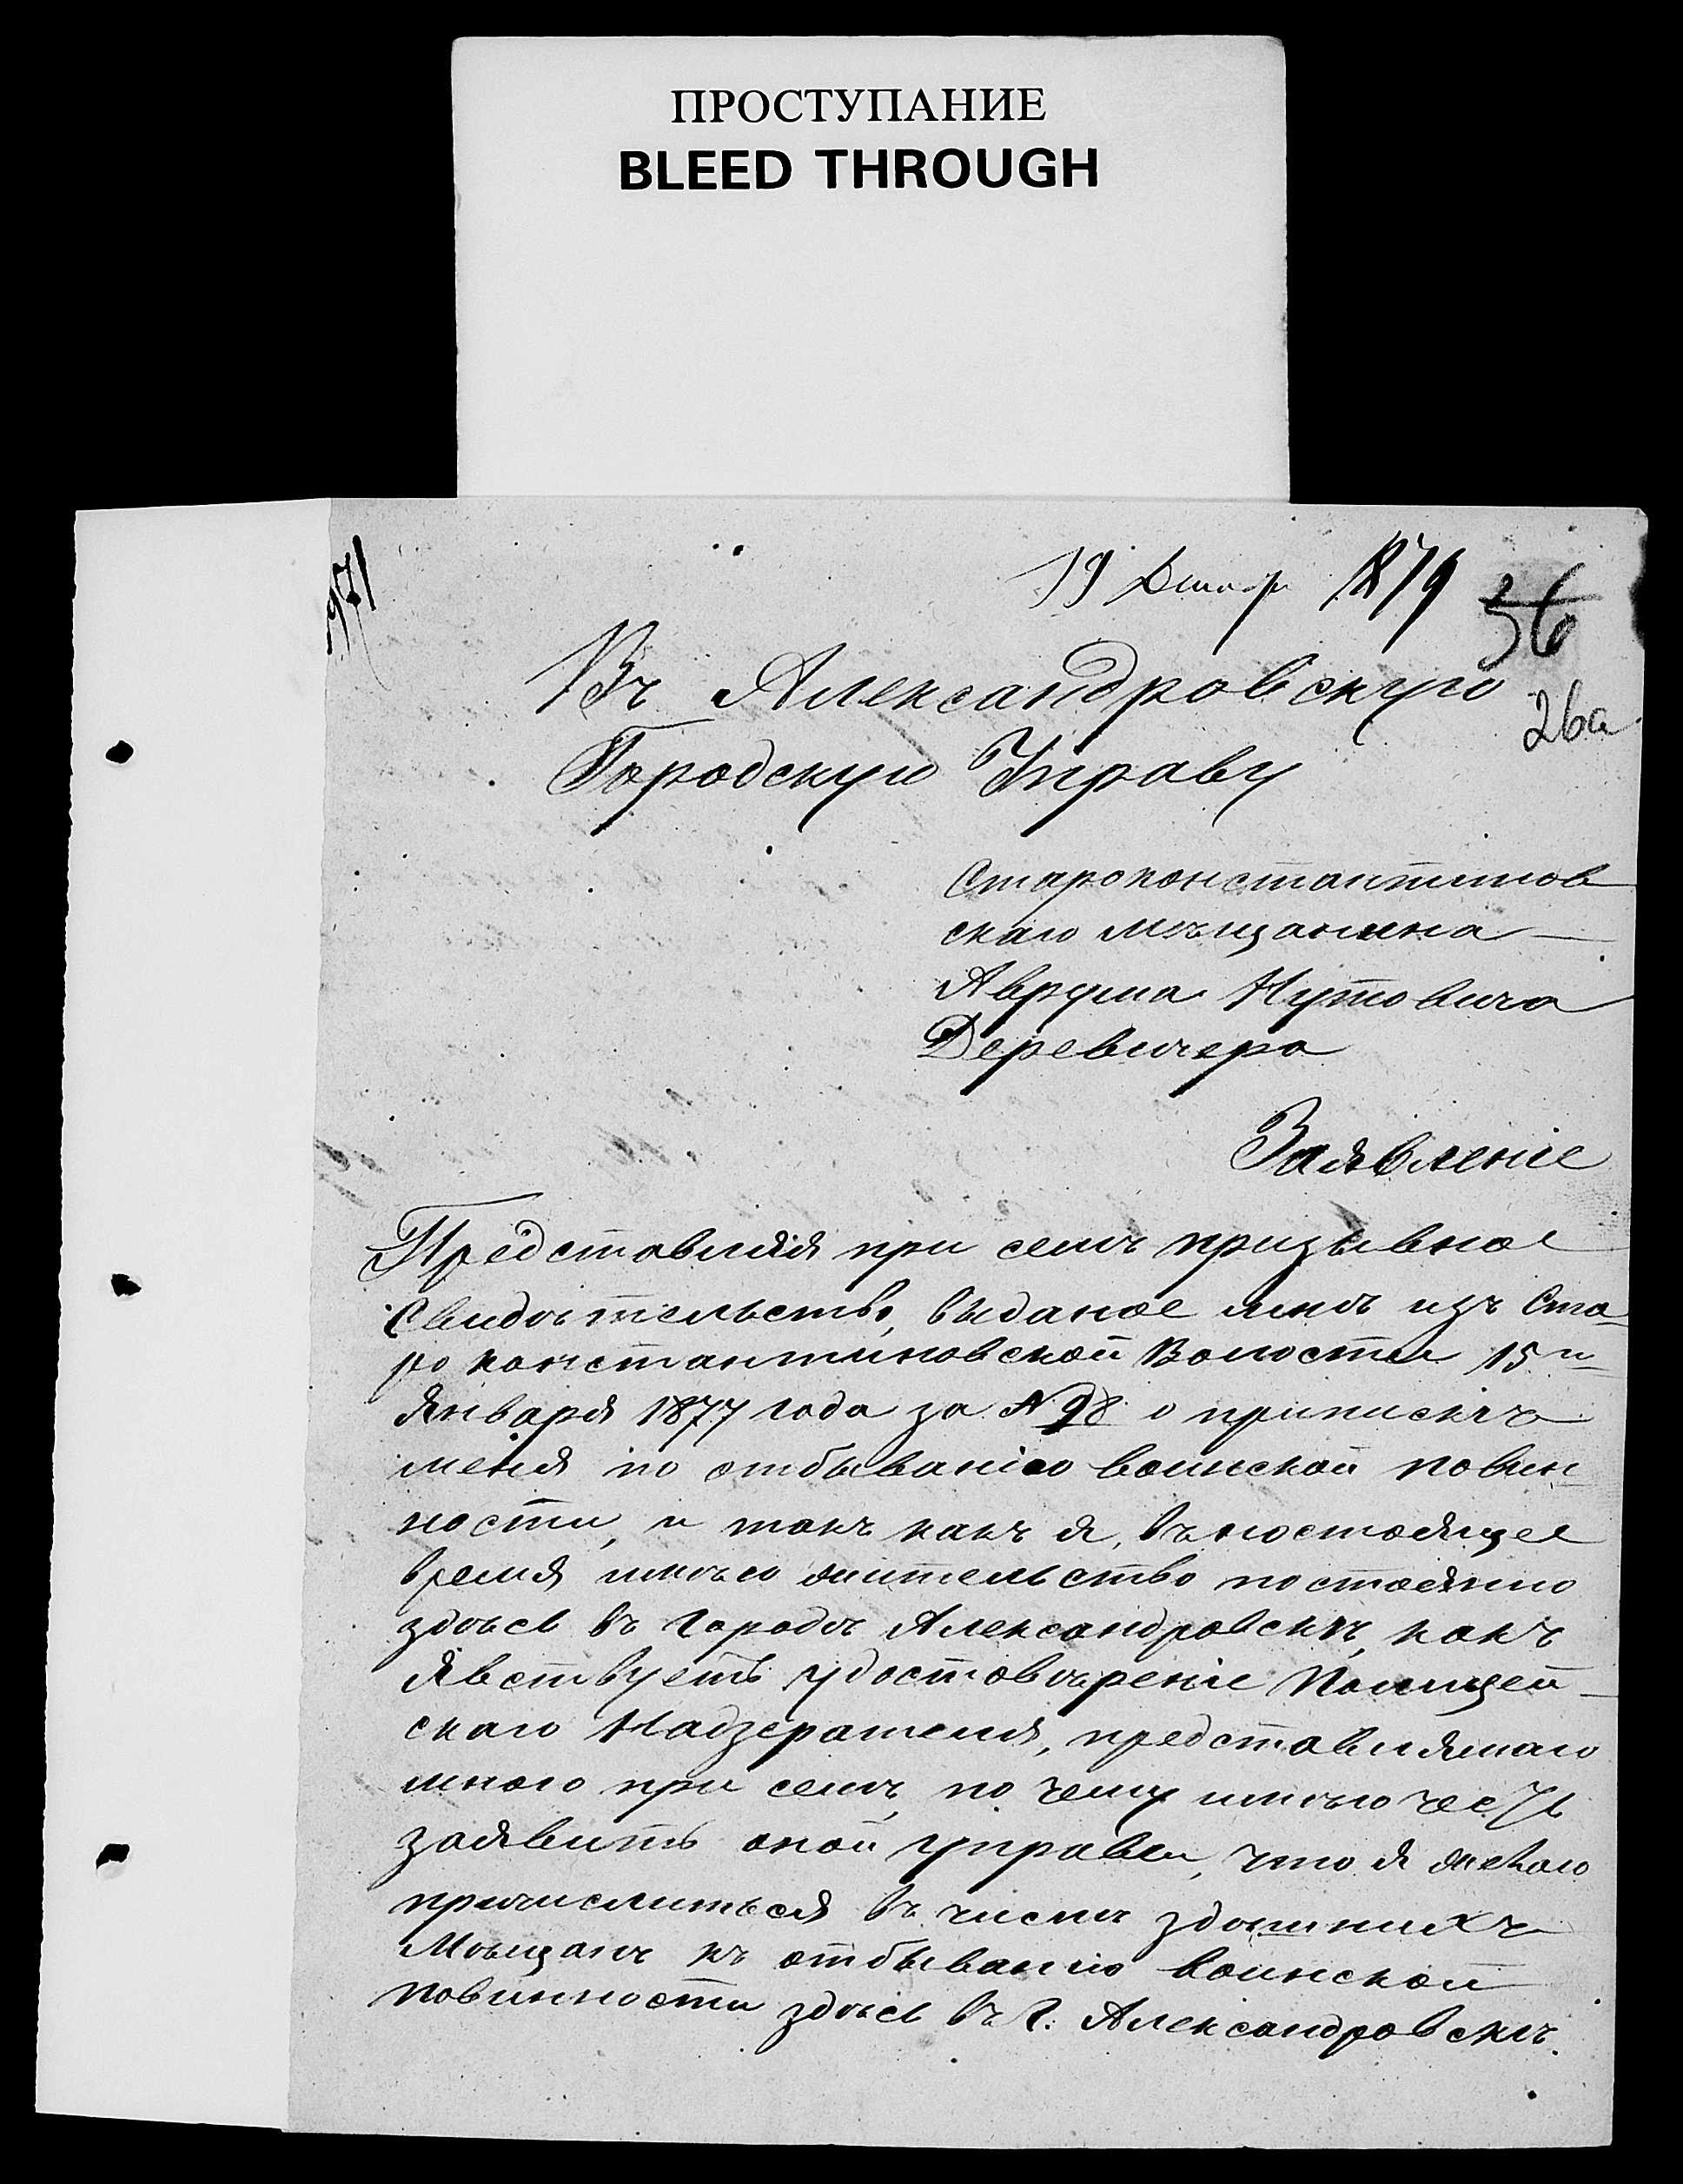 ПРОСТУПАНИЕ
BLEED THROUGH
971
19 1879
36
26а
Въ Александровскую
Городскую Управу
Староконстантинов
скаго мѣщанина
Аврума Нутовича
Деревичера
Заявленіе
Представляя при семъ призывное
Свидѣтельство, выданое мнѣ изъ Ста-
ро константиновской Волости 15го
Января 1877 года за №98 о припискѣ
меня по отбыванію воинской повин
ности, и такъ какъ я, въ настоящее
время имѣю жительство постоянно
здѣсь въ городѣ Александровскѣ, какъ
явствуетъ удостовѣреніе Полицей-
скаго Надзерателя, представляемаго
мною при семъ, по чему имѣю честь
заявить оной управы, что я желаю
причислиться въ число здѣшнихъ
Мѣщанъ къ отбыванію воинской
повинности здѣсь въ г. Александровскѣ.